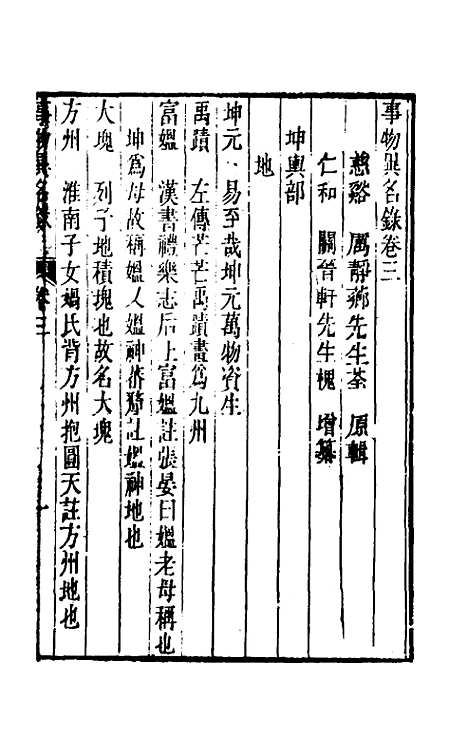 事物異名錄卷三
慈谿 厲靜薌先生荃 原輯
仁和 關晉軒先生槐 增纂
坤輿部
地
坤元 易至哉坤元萬物資生
禹蹟 左傳芒芒禹蹟畫爲九州
富媼 漢書禮樂志后土富媼註張晏曰媼老母稱也
坤爲母故稱媼又媼神蕃釐註媼神地也
大塊 列子地積塊也故名大塊
方州 淮南子女媧氏背方州抱圓天註方州地也
事物異名錄 卷三 一